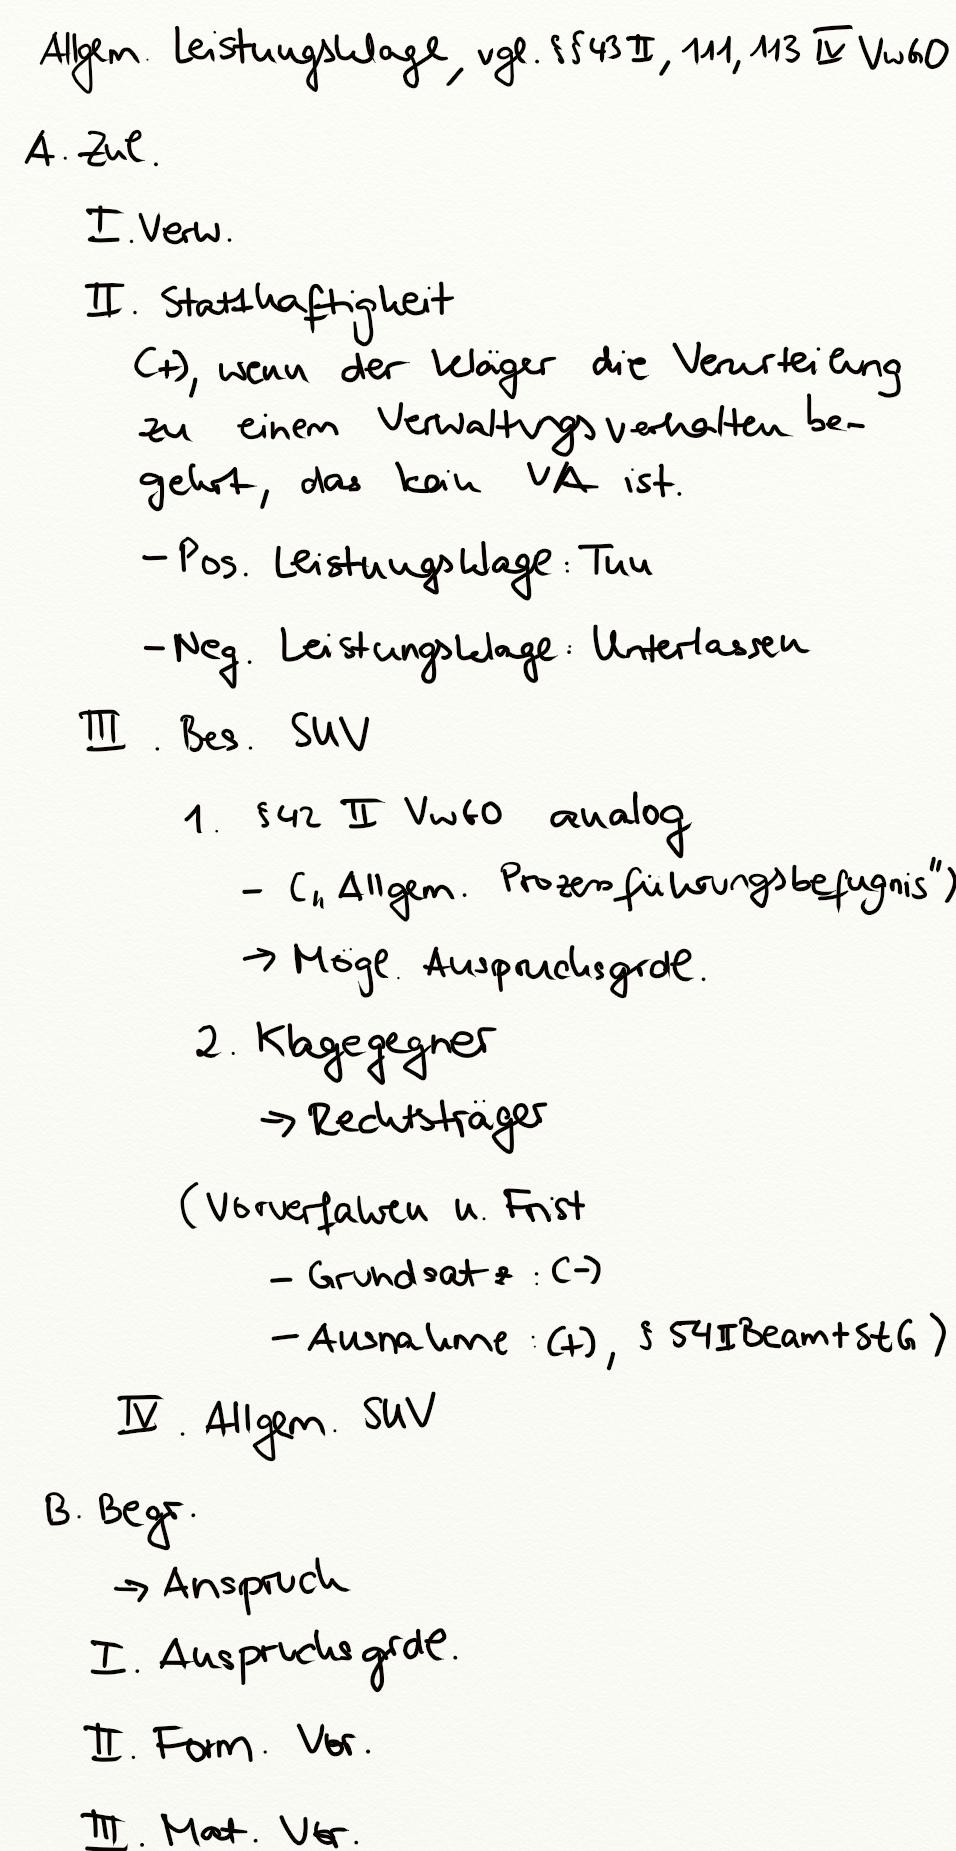 Allgem. Leistungsklage, vgl. §§ 43 II, 111, 113 IV VwGO
A. Zul.
I. Verw.
II. Statthaftigkeit
(+), wenn der Kläger die Verurteilung
zu einem Verwaltungsverhalten be-
gehrt, das kein VA ist.
- Pos. Leistungsklage: Tun
- Neg. Leistungsklage: Unterlassen
III. Bes. SUV
1. § 42 II VwGO analog
- („Allgem. Prozessführungsbefugnis")
→ Mögl. Anspruchsgrdl.
2. Klagegegner
→ Rechtsträger
(Vorverfahren u. Frist
- Grundsatz: (-)
- Ausnahme: (+), § 54 II BeamtStG)
IV. Allgem. SUV
B. Begr.
→ Anspruch
I. Anspruchsgrdl.
II. Form. Vor.
III. Mat. Vor.